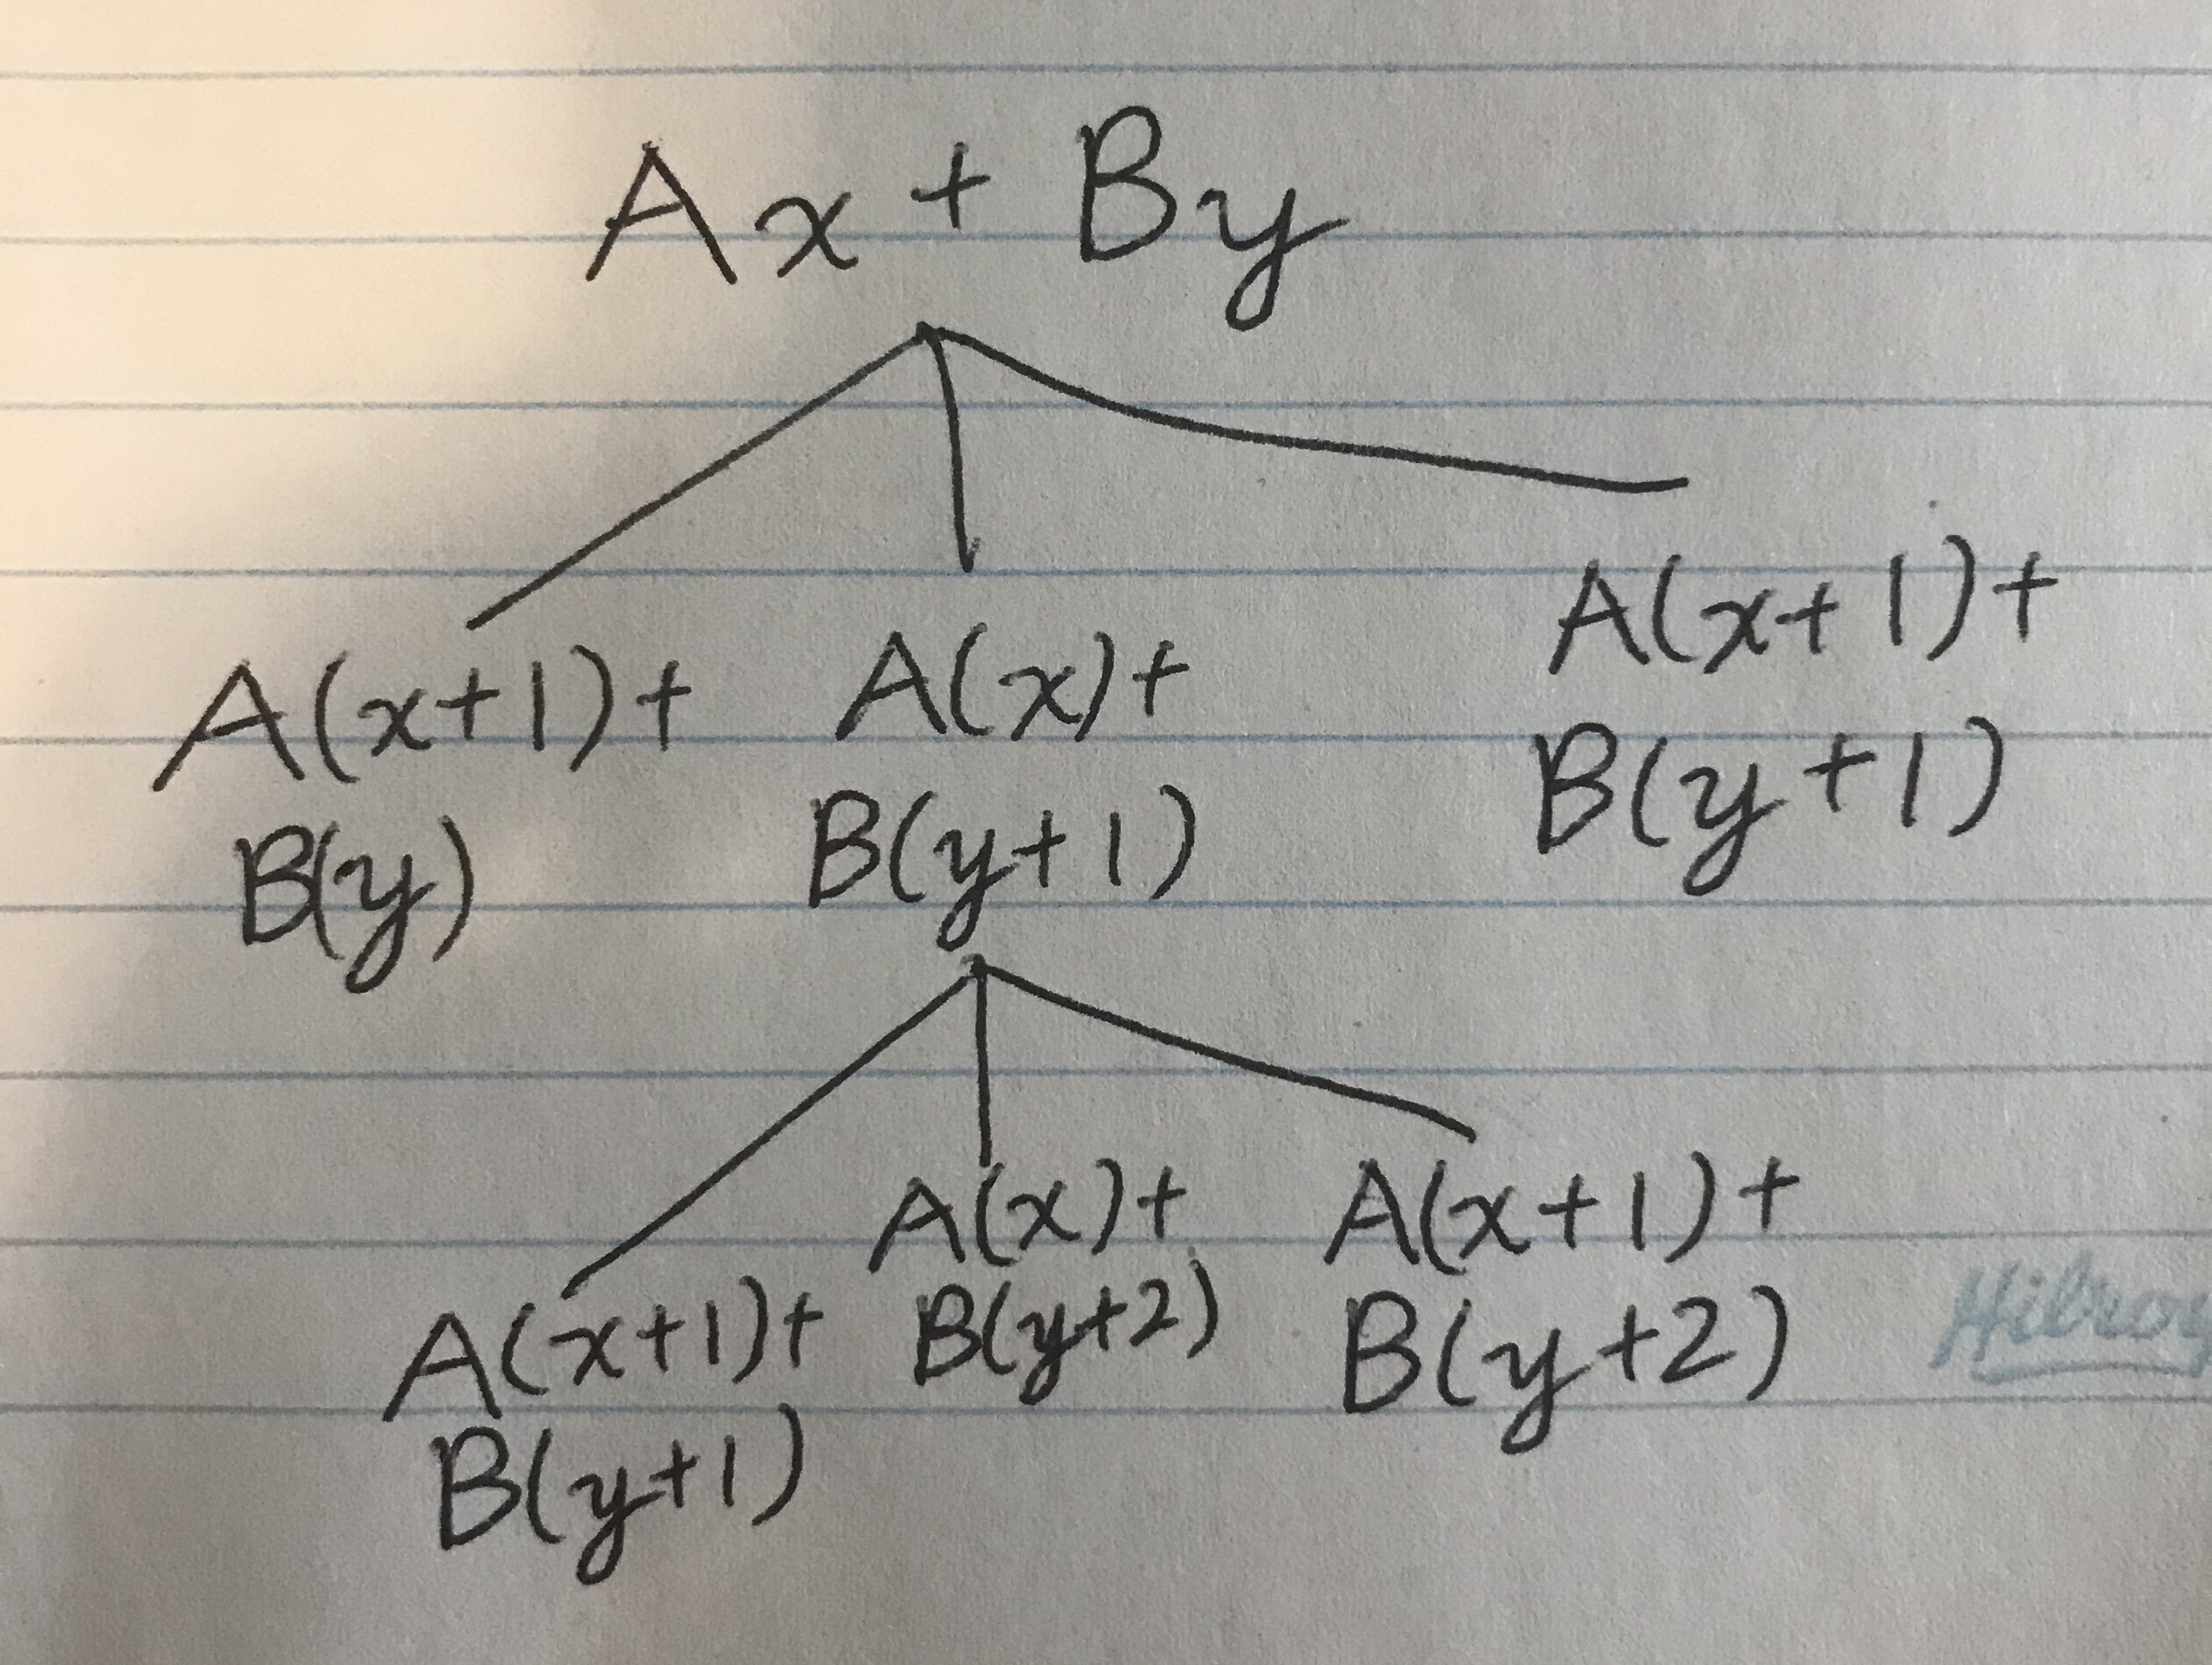 Ax + By
A(x+1)+
B(y)
A(x)+
B(y+1)
A(x+1)+
B(y+1)
A(x+1)+
B(y+1)
A(x)+
B(y+2)
A(x+1)+
B(y+2)
Hilroy